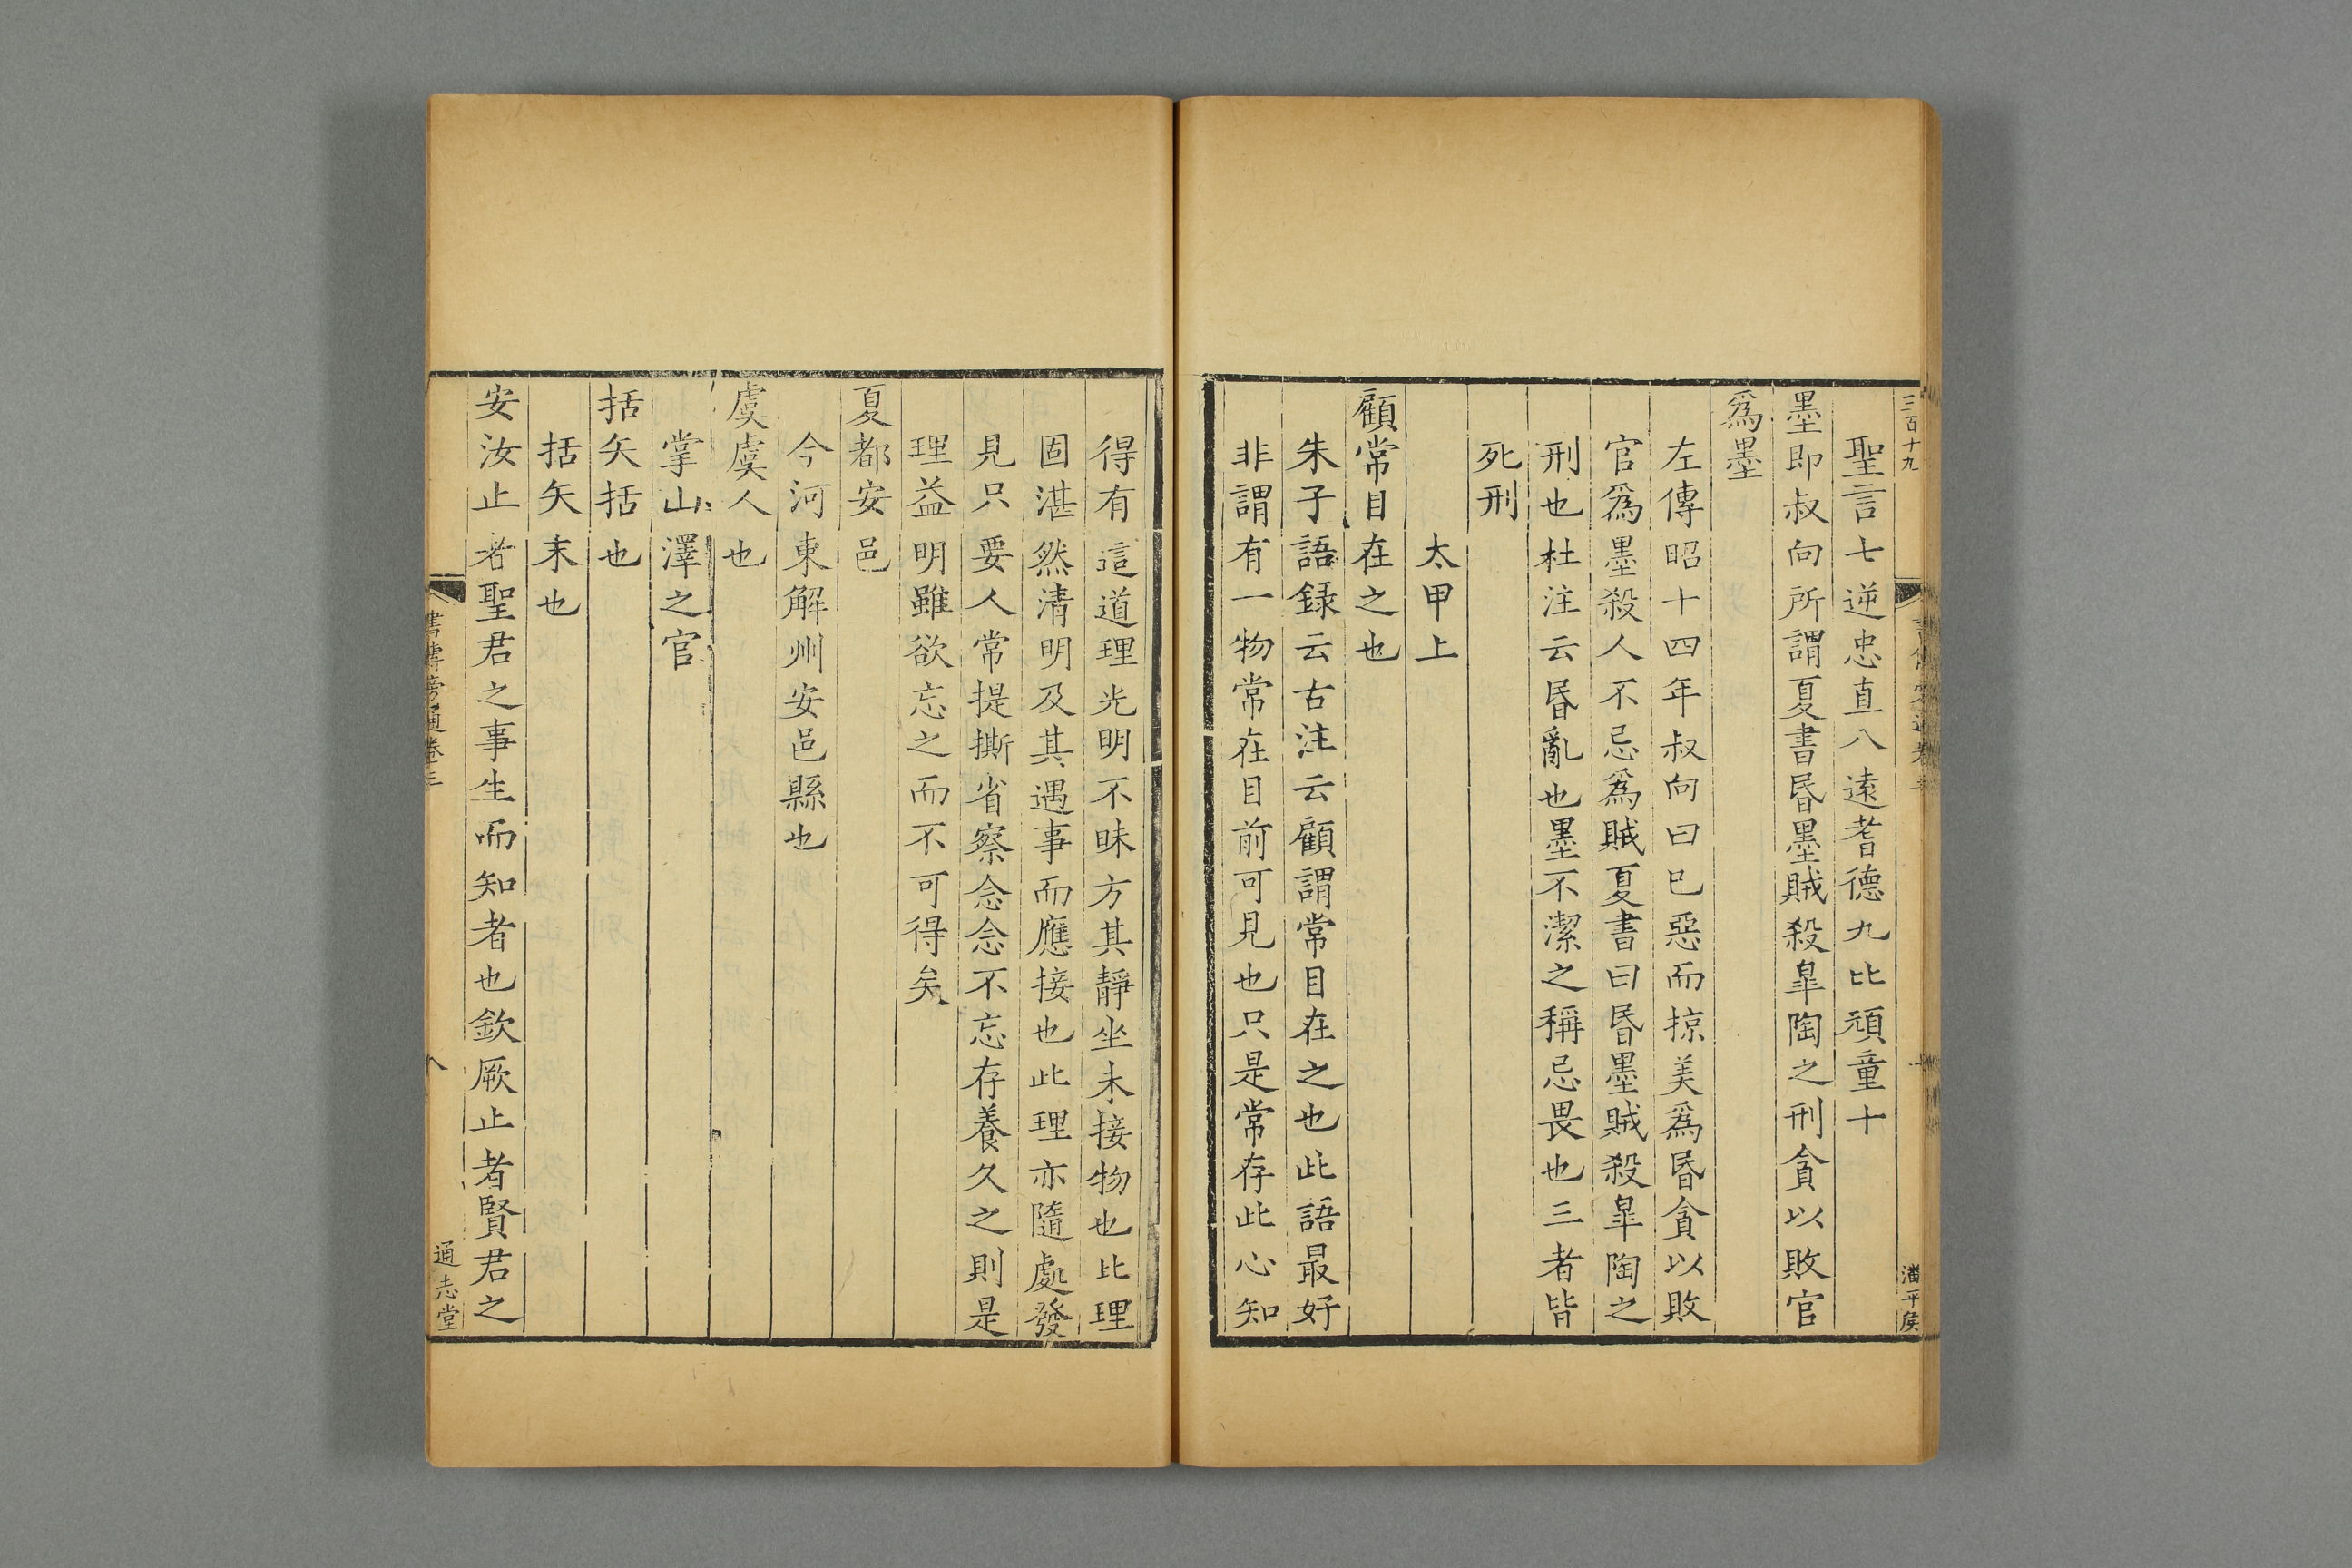 三百十九
潘平侯
聖言七逆忠直八遠耆德九比頑童十
墨即叔向所謂夏書昬墨賊殺臯陶之刑貪以敗官
爲墨
左傳昭十四年叔向曰巳惡而掠美爲昬貪以敗
官爲墨殺人不忌爲賊夏書曰昬墨賊殺臯陶之
刑也杜注云昬亂也墨不潔之稱忌畏也三者皆
死刑
太甲上
顧常目在之也
朱子語録云古注云顧謂常目在之也此語最好
非謂有一物常在目前可見也只是常存此心知
得有這道理光明不昧方其靜坐未接物也比理
固湛然清明及其遇事而應接也此理亦隨處發
見只要人常提撕省察念念不忘存養久之則是
理益明雖欲忘之而不可得矣
夏都安邑
今河東解州安邑縣也
虞虞人也
掌山澤之官
括矢括也
括矢末也
安汝止者聖君之事生而知者也欽厥止者賢君之
書傳旁通卷三
八
通志堂